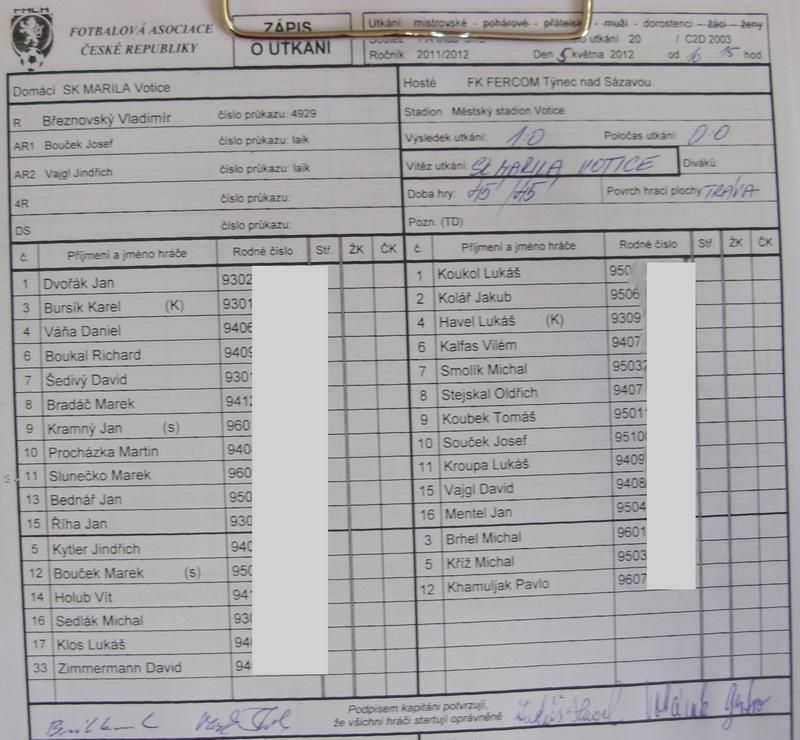 FOTBALOVÁ ASOCIACE
ČESKÉ REPUBLIKY
ZÁPIS
O UTKÁNÍ
Utkání: mistrovské - pohárové - přátelsk - muži - dorostenci - žáci - ženy
utkání 20 / C2D 2003
Ročník 2011/2012 Den 5 května 2012 od 16 15 hod.
Domácí SK MARILA Votice
Hosté FK FERCOM Týnec nad Sázavou
R Březnovský Vladimír číslo průkazu: 4929
AR1 Bouček Josef číslo průkazu: laik
AR2 Vajgl Jindřich číslo průkazu: laik
4R číslo průkazu:
DS číslo průkazu:
Stadion Městský stadion Votice
Výsledek utkání: 1:0 Poločas utkání: 0:0
Vítěz utkání: SK MARILA VOTICE Diváků:
Doba hry: 45 / 45 Povrch hrací plochy: TRÁVA
Pozn. (TD)
č. Příjmení a jméno hráče Rodné číslo Stř. ŽK ČK
1 Dvořák Jan 9302
3 Bursík Karel (K) 9301
4 Váňa Daniel 9406
6 Boukal Richard 9409
7 Šedivý David 930
8 Bradáč Marek 941
9 Kramný Jan (s) 960
10 Procházka Martin 940
11 Slunečko Marek 960
13 Bednář Jan 950
15 Říha Jan 930
5 Kytler Jindřich 940
12 Bouček Marek (s) 950
14 Holub Vít 94
16 Sedlák Michal 930
17 Klos Lukáš 94
33 Zimmermann David 94
č. Příjmení a jméno hráče Rodné číslo Stř. ŽK ČK
1 Koukol Lukáš 950
2 Kolář Jakub 9506
4 Havel Lukáš (K) 9309
6 Kalfas Vilém 9407
7 Smolík Michal 9503
8 Stejskal Oldřich 9407
9 Koubek Tomáš 9501
10 Souček Josef 9510
11 Kroupa Lukáš 9409
15 Vajgl David 9408
16 Mentel Jan 9504
3 Brhel Michal 9601
5 Kříž Michal 9503
12 Khamuljak Pavlo 9607
Podpisem kapitáni potvrzují,
že všichni hráči startují oprávněně